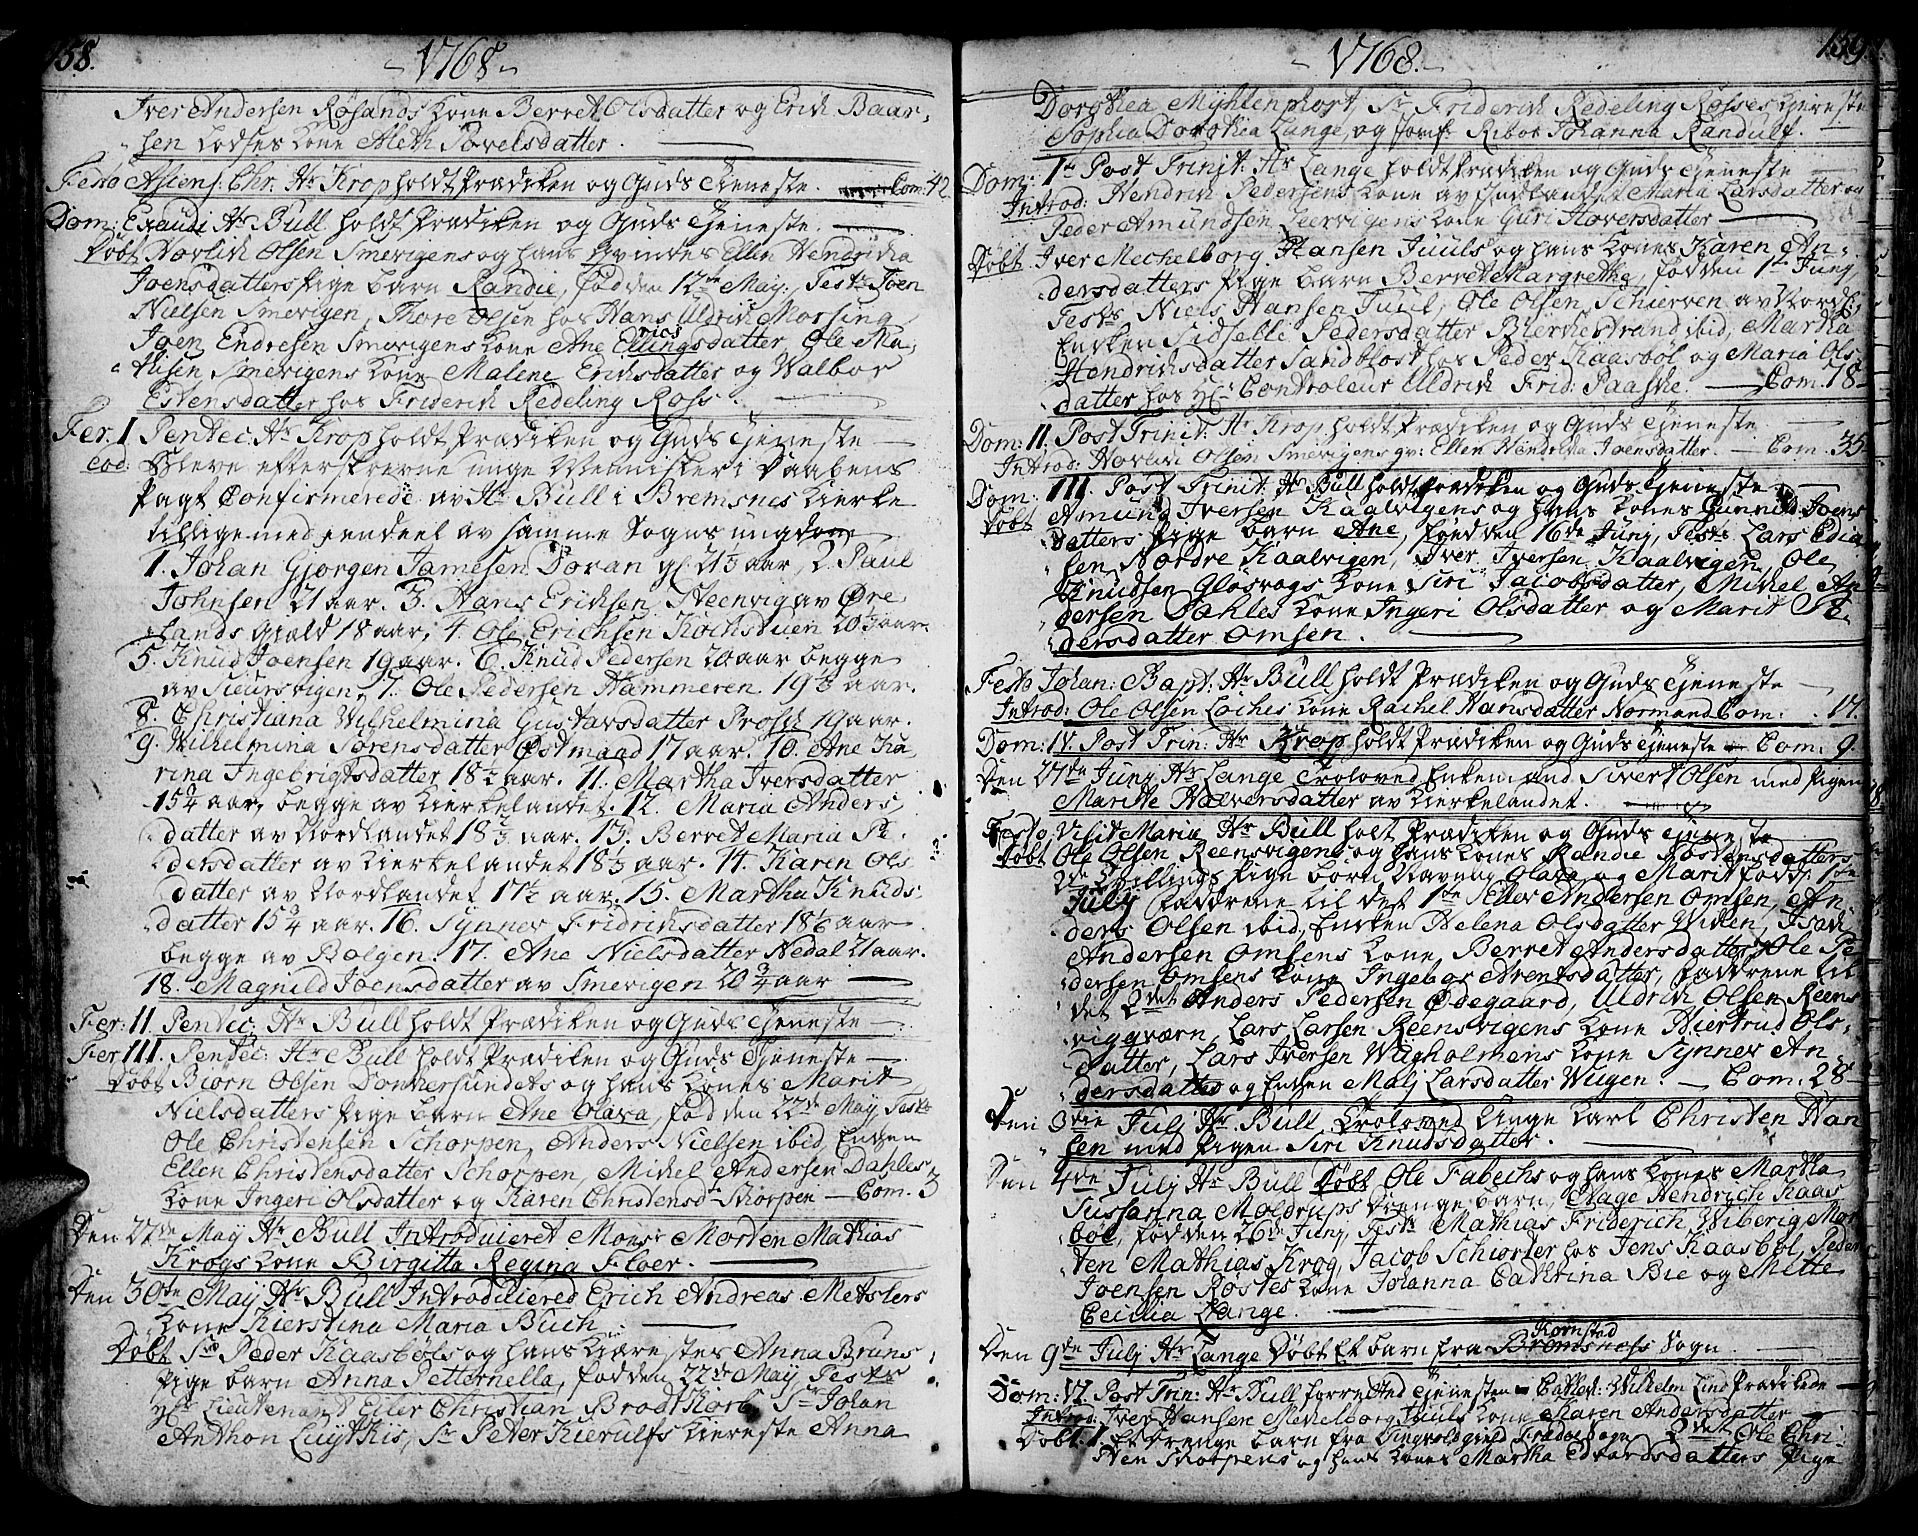 158.
-1768-
Iver Andersen Røsands Kone Berret Olsdatter og Erich Baar-
sen Lodses Kone Aleth Povelsdatter.
Festo Asiens: Chr. Hr. Krop holdt Prædiken og Guds Tjeneste. Com: 42
Dom: Exaudi Hr Bull holdt Prædiken og Guds Tjeneste.
Døbt Olsen Smevigens og hans Qvindes Ellen Hendricha
Joensdatters Pige barn Randie, fød den 12te May: Test: Joen
Nielsen Smevigen, Thore Olsen hos Hans Uldrich Morsing
Joen Endresen Smevigens Kone Ane Ellingsdatter, Ole Ma-
thisen Smevigens Kone Malene Erichsdatter og Walbor
Estensdatter hos Friderich Redeling Ross.
Fer. I Pentec: Hr Krop holdt Prædiken og Guds Tjeneste
eod: Bleve efterskrevne unge Mennisker i Daabens
Pagt Confirmerede av Hr Bull i Bremsnes Kierke
tillige med eendeel av samme Sogns ungdom
1. Johan Gjørgen Jamesen Doran gl. 21½ aar, 2. Paul
Johnsen 21 aar. 3. Hans Erichsen Steenvig av Øre
lands Gield 18 aar, 4 Ole Erichsen 20½ aar.
5. Knud Joensen 19 aar. 6. Knud Pedersen 20 aar begge
av Sieursvigen, 7. Ole Pedersen Hammeren 19½ aar.
8. Christiana Wilhelmina Gustavsdatter Prosch 19 aar.
9. Wilhelmina Sørensdatter Østmand 17 aar. 10. Ane Ka-
rina Ingebrigtsdatter 18½ aar. 11. Martha Iversdatter
15¾ aar, begge av Kierkelandet. 12. Maria Anders
datter av Nordlandet 18½ aar. 13. Berret Maria Pe-
dersdatter av Kierkelandet 18½ aar. 14. Karen Ols
datter av Nordlandet 17½ aar. 15. Martha Knuds-
datter 15¾ aar. 16. Synnev Fridrichsdatter 18½ aar
begge av Bolgen. 17. Ane Nielsdatter Nedal 21 aar.
18. Magnild Joensdatter av Smevigen 20¾ aar
Fer: II. Pentec: Hr Bull holdt Prædiken og Guds Tjeneste
Fer: III. Pentec: Hr Bull holdt Prædiken og Guds Tjeneste
Døbt Biørn Olsen Donkersundets og hans Kones Marit
Nielsdatters Pige barn Ane Olava, fød den 22de May, Test:
Ole Christensen Schorpen, Anders Nielsen ibid, Enken
Ellen Christensdatter Schorpen, Michel Andersen Dahles
Kone Ingeri Olsdatter og Karen Christensd: Skorpen — Com. 3
Den 27de May Hr Bull Introduceret Monsr Morten Mathias
Krogs Kone Birgitta Regina Floer.
Den 30te May Hr Bull Introducered Erich Andreas Metslers
Kone Kierstina Maria Buch.
Døbt Sr Peder Kaasbøls og hans Kiærestes Anna Bruns
Pige barn Anna Petternella, fød den 22de May Testes
Hr Lieutenant Eiler Christian Brodtkorb, Sr Johan
Anthon Luytkis, Sr Peter Kierulfs Kiereste Anna
159.
-1768.-
Dorothea Myhlenphort, Sr Friderich Redeling Rosses Kiereste
Sophia Dorothea Lange, og Jomf: Johanna Randulf.
Dom: 1te Post Trinit: Hr Lange holdt Prædiken og Guds Tjeneste
Introd: Hendrich Pedersens Kone av Indlandet Maria Larsdatter og
Peder Amundsen Leervigens Kone Guri Stoversdatter
Døbt Iver Mechelborg Hansen Juuls og hans Kones Karen An-
dersdatters Pige barn Berret Margrethe, fød den 1te Junj
Testes Niels Hansen Juul, Ole Olsen, Schierven av Nordl:
Enken Sidselle Pedersdatter Blerkestrand ibid, Martha
Hendrichsdatter Sandblost hos Peder Kaasbøl og Maria Ols-
datter hos Hr Controleur Uldrich Frid: Paaske. — Com. 18
Dom: II. Post Trinit: Hr Krop holdt Prædiken og Guds Tjeneste
Introd: Olsen Smevigens qv: Ellen Hendricha Joensdatter. — Com. 35
Dom: III. Post Trinit: Hr Bull holdt Prædiken og Guds Tjeneste
Døbt Amund Iversen Kaalvigens og hans Kones Gunnild Joens
datters Pige barn Ane, fød den 16de Junj, Test: Lars Edia
sen Nordre Kaalvigen, Iver Iversen Kaalvigen, Ole
Knudsen Gløsvogs Kone Siri Jacobsdatter, Michel An-
dersen Dahles Kone Ingeri Olsdatter og Marit Pe-
dersdatter Omsen.
Festo Johan: Bapt: Hr Bull holdt Prædiken og Guds Tjeneste
Introd: Ole Olsen Loches Kone Rachel Hansdatter Normand Com: 17.
Dom: IV. Post Trin: Hr Krop holdt Prædiken og Guds Tjeneste Com: 9.
Den 27de Junj Hr Lange Troloved Enkemand Sivert Olsen med Pigen
Maritte Halversdatter av Kierkelandet.
Festo Visit Mariæ Hr Bull holdt Prædiken og Guds Tjeneste
Døbt Ole Olsen Reensvigens og hans Kones Randie Tostensdatters
2de Tvillings Pige børn Navnlig Olava og Marit fødde 1te
July Fadderne til det 1te Peder Andersen Omsen, An-
ders Olsen ibid, Enken Helena Olsdatter Wiken,
Andersen Omsens Kone Berret Andersdatter, Ole Pe-
dersen Omsens Kone Ingebor Arentsdatter, Fadderne til
det 2det Anders Pedersen Ødegaard, Uldrich Olsen Reens
viggværn, Lars Larsen Reensvigens Kone Hiertrud Ols-
datter, Lars Iversen Wugholmens Kone Synnev An
dersdatter og Enken Malj Larsdatter Wugen. — Com. 28
Den 3die Julj Hr Bull Troloved Unge Karl Christen Han
sen med Pigen Siri Knudsdatter.
Den 4de Julj Hr Bull Døbt Ole Fabechs og hans Kones Martha
Sussanna Moldrups Drenge barn, Aage Hendrich Kaas
bøl, fød den 26de Junj, Test: Mathias Friderich Wiberg Mor
ten Mathias Krog, Jacob Schiørter hos Jens Kaasbøl, Peder
Joensen Røstes Kone Johanna Cathrina Bie og Mette
Cecilia Lange.
Den 9de Julj Hr Lange Døbt Et barn fra Bremsness Kornstad Sogn
Dom: VI. Post Trin: Hr Bull forretted Tjenesten — Wilhelm Lind Prædikede
Introd: Iver Hansen Mechelborg Juuls Kone Karen Andersdatter
Døbt 1 Et Drenge barn fra Tingvold gield Sogn 2det Ole Chri-
sten Skorpens og hans Kones Martha Edvardsdatters Pige